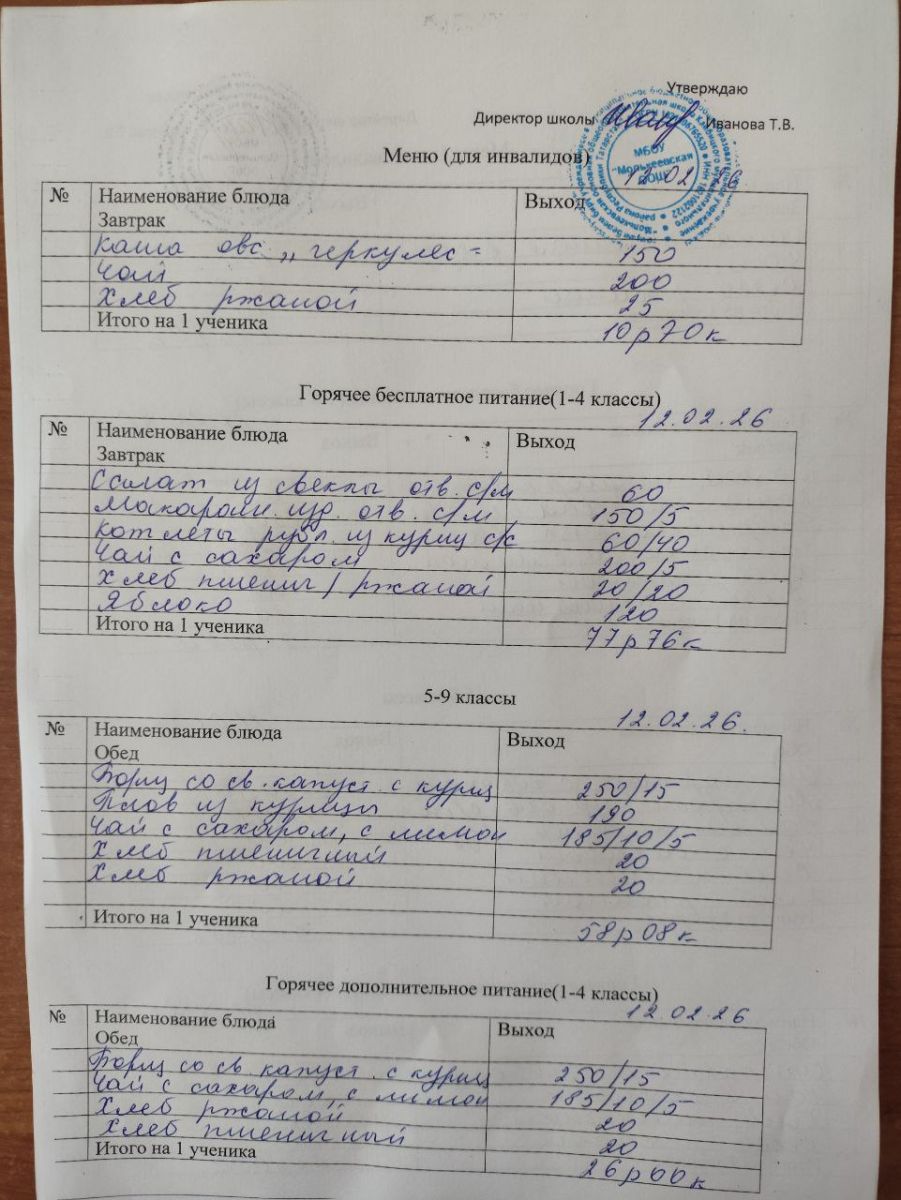 Утверждаю
Директор школы Иванова Т.В.
МБОУ "Молькеевская ООШ"
Меню (для инвалидов)
12.02.26
№ Наименование блюда Выход
Завтрак
Каша овс „геркулес" 150
Чай 200
Хлеб ржаной 25
Итого на 1 ученика 10р70к
Горячее бесплатное питание(1-4 классы)
12.02.26
№ Наименование блюда Выход
Завтрак
Салат из свеклы отв. с/м 60
Макарон. изд. отв. с/м 150/5
Котлеты рубл. из куриц с/с 60/40
Чай с сахаром 200/5
Хлеб пшенич/ржаной 20/20
Яблоко 120
Итого на 1 ученика 77р76к
5-9 классы
12.02.26.
№ Наименование блюда Выход
Обед
Борщ со св. капуст. с куриц 250/15
Плов из курицы 190
Чай с сахаром, с лимон 185/10/5
Хлеб пшеничный 20
Хлеб ржаной 20
Итого на 1 ученика 58р08к
Горячее дополнительное питание(1-4 классы)
12.02.26
№ Наименование блюда Выход
Обед
Борщ со св капуст. с куриц 250/15
Чай с сахаром, с лимон 185/10/5
Хлеб ржаной 20
Хлеб пшеничный 20
Итого на 1 ученика 26р00к